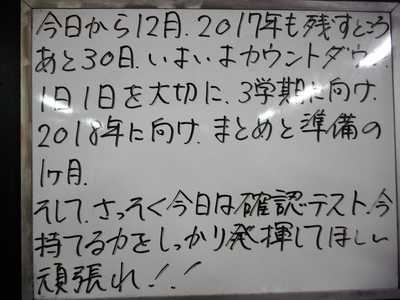 今日から12月．2017年も残すところ
あと30日．いよいよカウントダウン．
1日1日を大切に、3学期に向け、
2018年に向け、まとめと準備の
1ヶ月．
そして、さっそく今日は確認テスト、今
持てる力をしっかり発揮してほしい
頑張れ！！